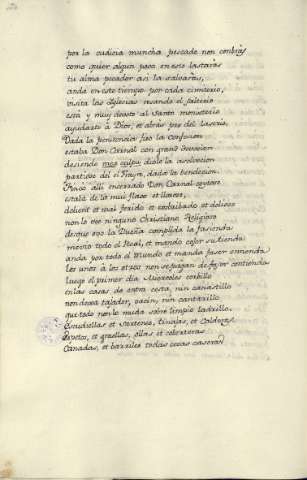 por la cudicia muncha pescado non combràs
como quier algun poco en esto lastaràs
tu alma pecador asi la salvaràs,
anda en este tiempo por cada cimiterio,
visita las Iglesias rezando el salterio
està y muy devoto al Santo monesterio
ayudarte à Dios, et abràs pro del lacerio.
Dada la penitencia fizo la Confesion
estaba Don Carnal con grand devocion
desiende mea culpa; diole la asolucion
partiose del el Frayre, dada la bendicion.
Fincò allì encerrado Don Carnal
estaba de la muy flaco et
dolient et mal ferido et et doliosо
non lo vee ninguno Christiano Religioso
desque ovo la Dueña complida la fasienda
movió todo el Real, et mandò coger su tienda
anda por todo el Mundo et manda faser emienda
los unos à los otros non se pagan de faser contienda
luego el primer dia Miercoles corbillo
en las casas do entra cesta, nin canistillo
non dexa tajador, vacin, nin cantarillo
que todo non lo muda sobre limpio ladrillo.
Escudillas et Sartenes, tinajas, et Calderas
Espetos, et griellas, ollas et coberteras
Cañadas, et barriles todas cosas caseras